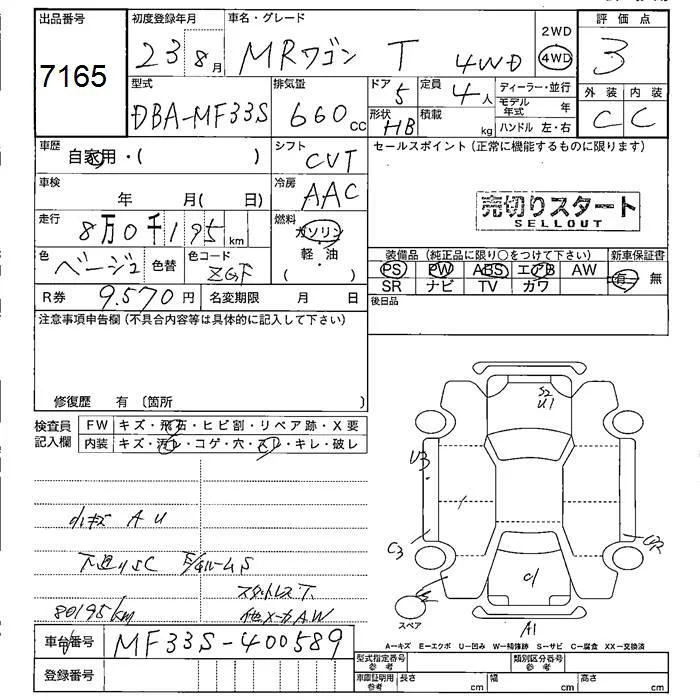 出品番号 初度登録年月 車名・グレード 2WD 評価点
7165 23 8月 MRワゴン T 4WD 4WD 3
型式 排気量 ドア 定員 ディーラー・並行 外装 内装
DBA-MF33S 660cc 5 4人 モデル年式 年 C C
形状 積載 ハンドル 左・右
HB kg
車歴 自家用・( ) シフト CVT セールスポイント (正常に機能するものに限ります)
車検 年 月( 日) 冷房 AAC
売切りスタート
SELLOUT
走行 8万0千195km 燃料 ガソリン
軽・油
( )
色 ベージュ 色替 色コード ZGF
装備品 (純正品に限り〇をつけて下さい) 新車保証書
PS PW ABS エアB AW 有 無
SR ナビ TV カワ
R券 9,570円 名変期限 月 日 後日品
注意事項申告欄 (不具合内容等は具体的に記入して下さい)
修復歴 有 〔箇所 〕
検査員記入欄 FW キズ・飛石・ヒビ割・リペア跡・X要
内装 キズ・汚レ・コゲ・穴・スレ・キレ・破レ
S2
U1
U3
小キズ A U
C3
下廻りSC
スタットレスT
80195km 他メーカAW
スペア
A1
A-キズ E-エクボ U-凹み W-補修跡 S-サビ C-腐食 XX-交換済
車台番号 MF33S-400589
型式指定番号 参考 類別区分番号 参考
登録番号 車庫証明用 参考 長さ cm 幅 cm 高さ cm